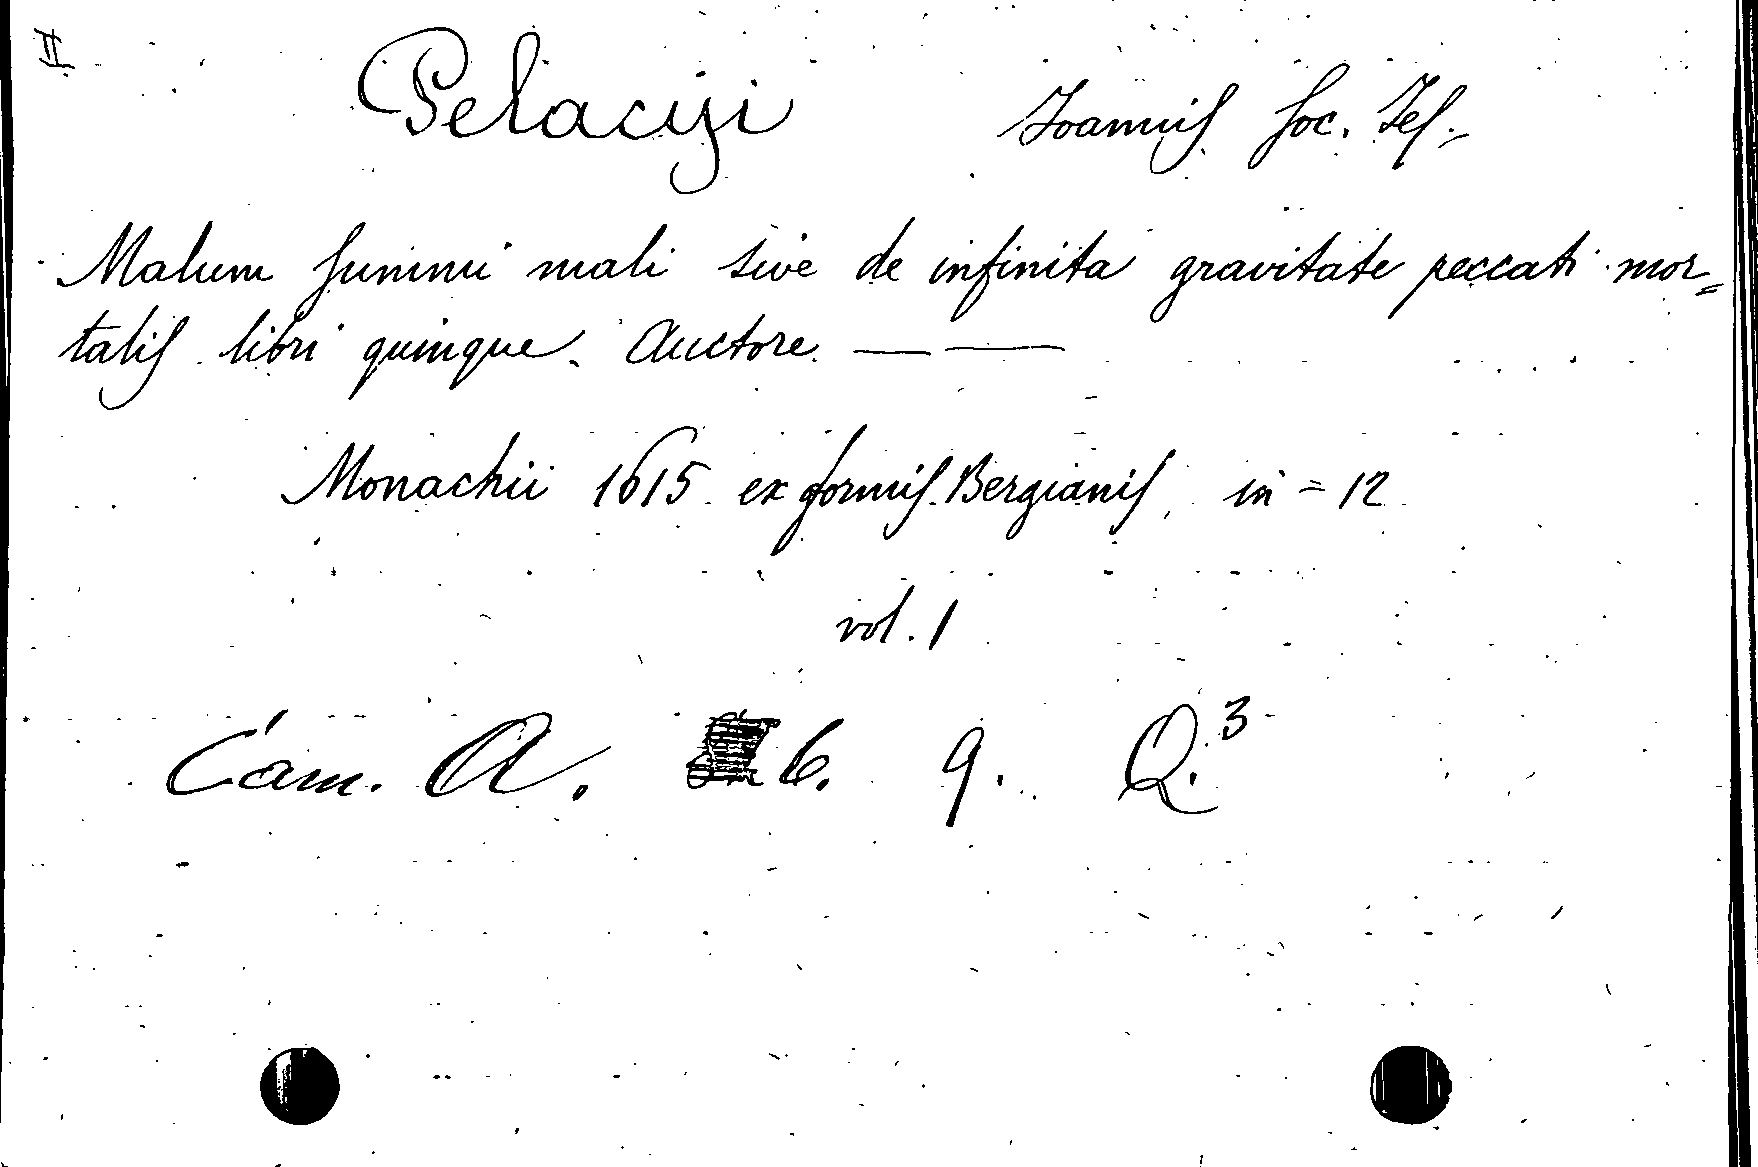 II
Pelacyi Joannis Soc. Jes.
Malum summi mali sive de infinita gravitate peccati mor=
talis libri quinque. Auctore — —
Monachii 1615 ex formis Bergianis, in = 12
vol. 1
Cam. A. 6. 9. Q.3